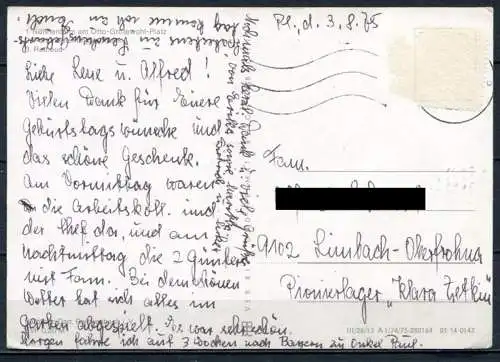 Pl., d. 3.8.75
1 am Otto-Grotewohl-Platz
d. Rathaus
Liebe Lene u. Alfred!
Vielen Dank für Eure
Geburtstagswünsche und
das schöne Geschenk.
Am Vormittag waren
die Arbeitskoll. und
der Chef da, und am
Nachmittag die 2 Günters
mit Fam. Bei dem schönen
Wetter hat sich alles im
Garten abgespielt. Es war sehr schön.
Morgen fahre ich auf 3 Wochen nach Bayern zu Onkel Paul.
Nochmals herzl. Dank u. viele Grüße
von
Fam.
9102 Limbach-Oberfrohna
Pionierlager "Klara Zetkin"
III/26/13 A 1/74/75 280164 01 14 0142